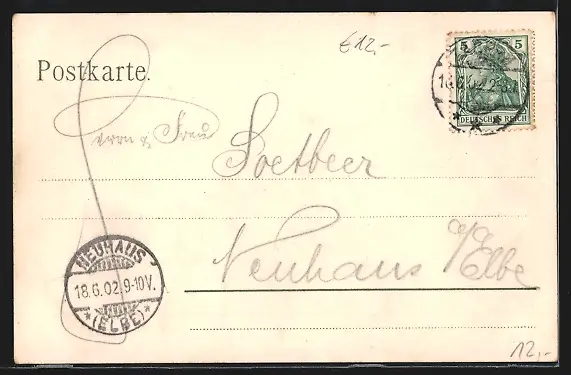 €12,-
5 5
Postkarte.
DEUTSCHES REICH
Herrn & Frau
Soetbeer
Neuhaus
a/Elbe
NEUHAUS
18.6.02.9-10V.
* (ELBE) *
12,-